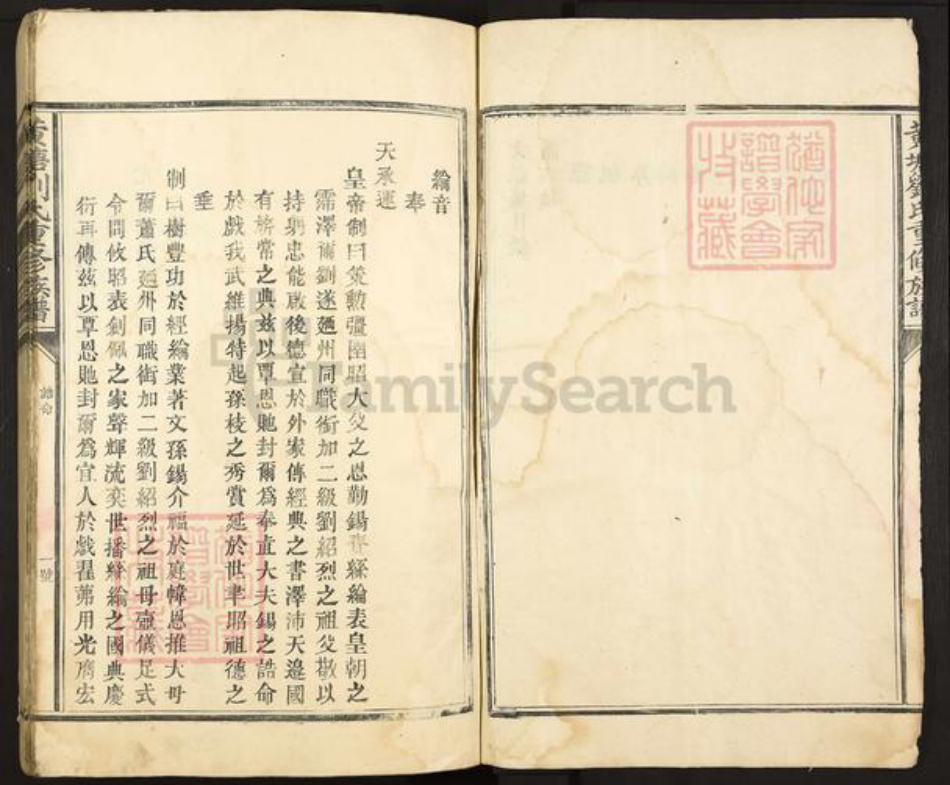 黃塘劉氏重修族譜
綸音
奉
天承運
皇帝制曰策勲彊圉昭大父之恩勤錫賚絲綸表皇朝之
霈澤爾劉遂廼州同職銜加二級劉紹烈之祖父敬以
持躬忠能啟後德宣於外家傳經典之書澤沛天邊國
有旂常之典兹以覃恩貤封爾爲奉直大夫錫之誥命
於戲我武維揚特起孫枝之秀賞延於世聿昭祖德之
垂
制曰樹豐功於經綸業著文孫錫介福於庭幃恩推大母
爾蕭氏廼州同職銜加二級劉紹烈之祖母壼儀足式
令問攸昭表劍佩之家聲輝流奕世播絲綸之國典慶
衍再傳兹以覃恩貤封爾爲宜人於戲翟茀用光膺宏
黃塘劉氏重修族譜
誥命
一號
FamilySearch